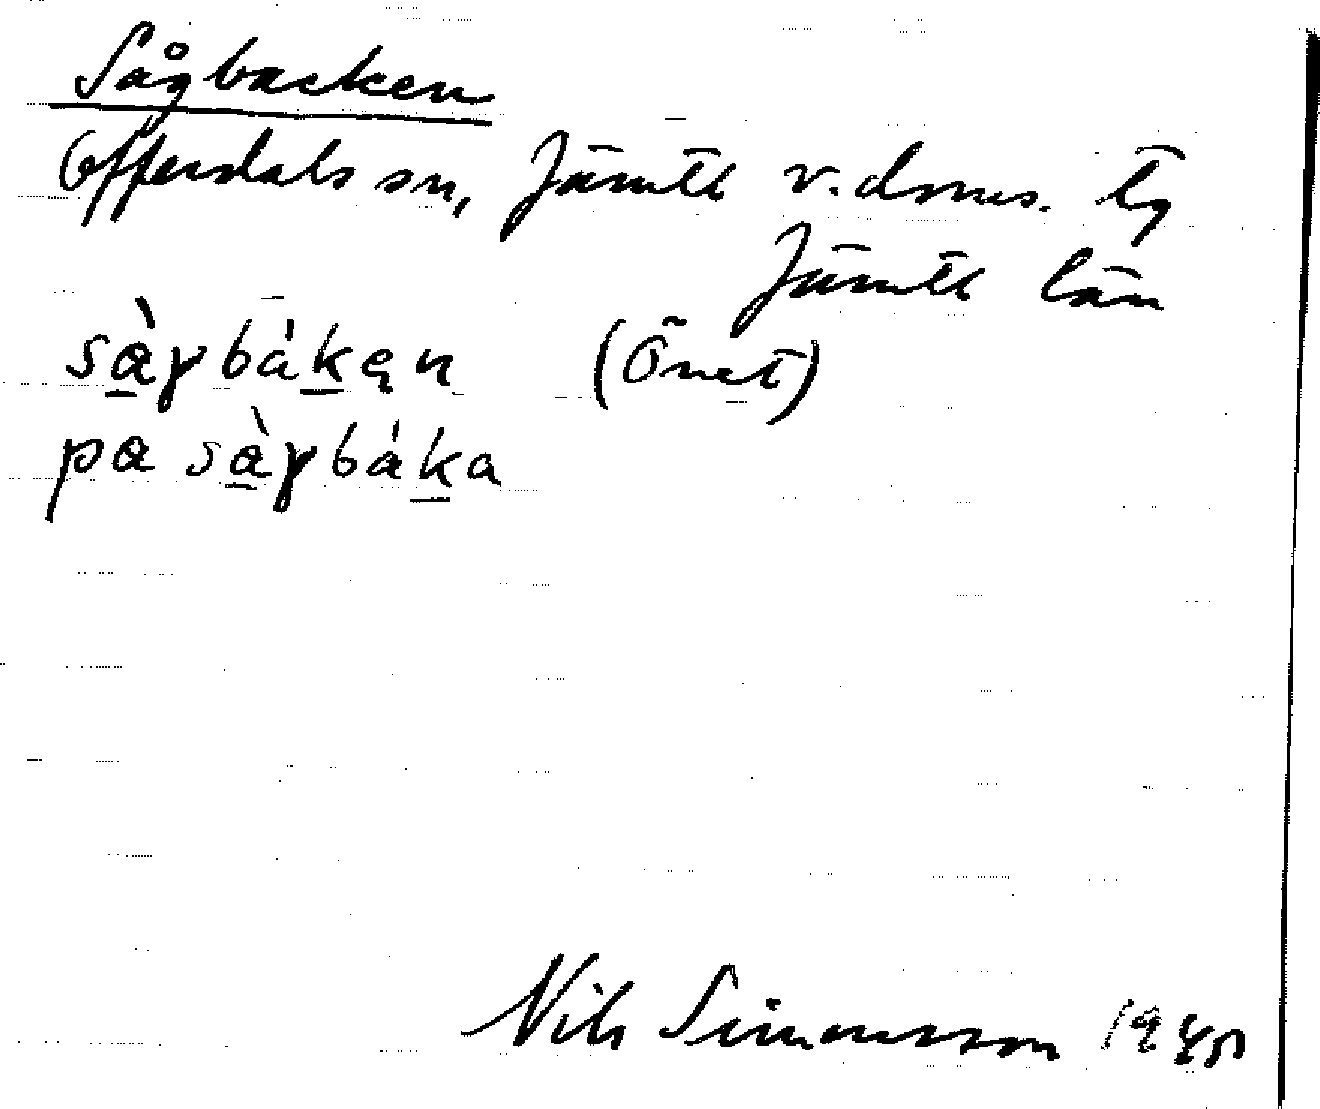 Sågbacken
Offerdals sn, Jämtl v. doms. tg
Jämtl län
sà̱γbáḵęn (Önet)
pɑ sà̱γbáḵa
Nils Simonsson